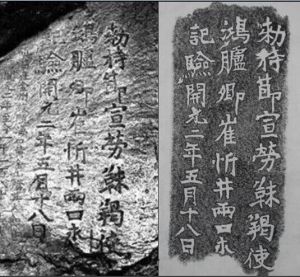 勅持節宣勞靺羯使
鴻臚卿崔忻井兩口永
記驗開元二年五月十八日
勅持節宣勞靺羯使
鴻臚卿崔忻井兩口永
記驗開元二年五月十八日